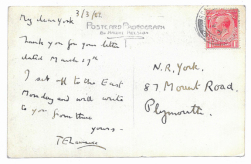 My dear York 3/3/22
Thank you for your letter
dated March 17th
I set off to the East
Monday and will write
to you from there
yours -
TELawrence
POSTCARD PHOTOGRAPH
N.R. York.
87 Mount Road,
Plymouth.